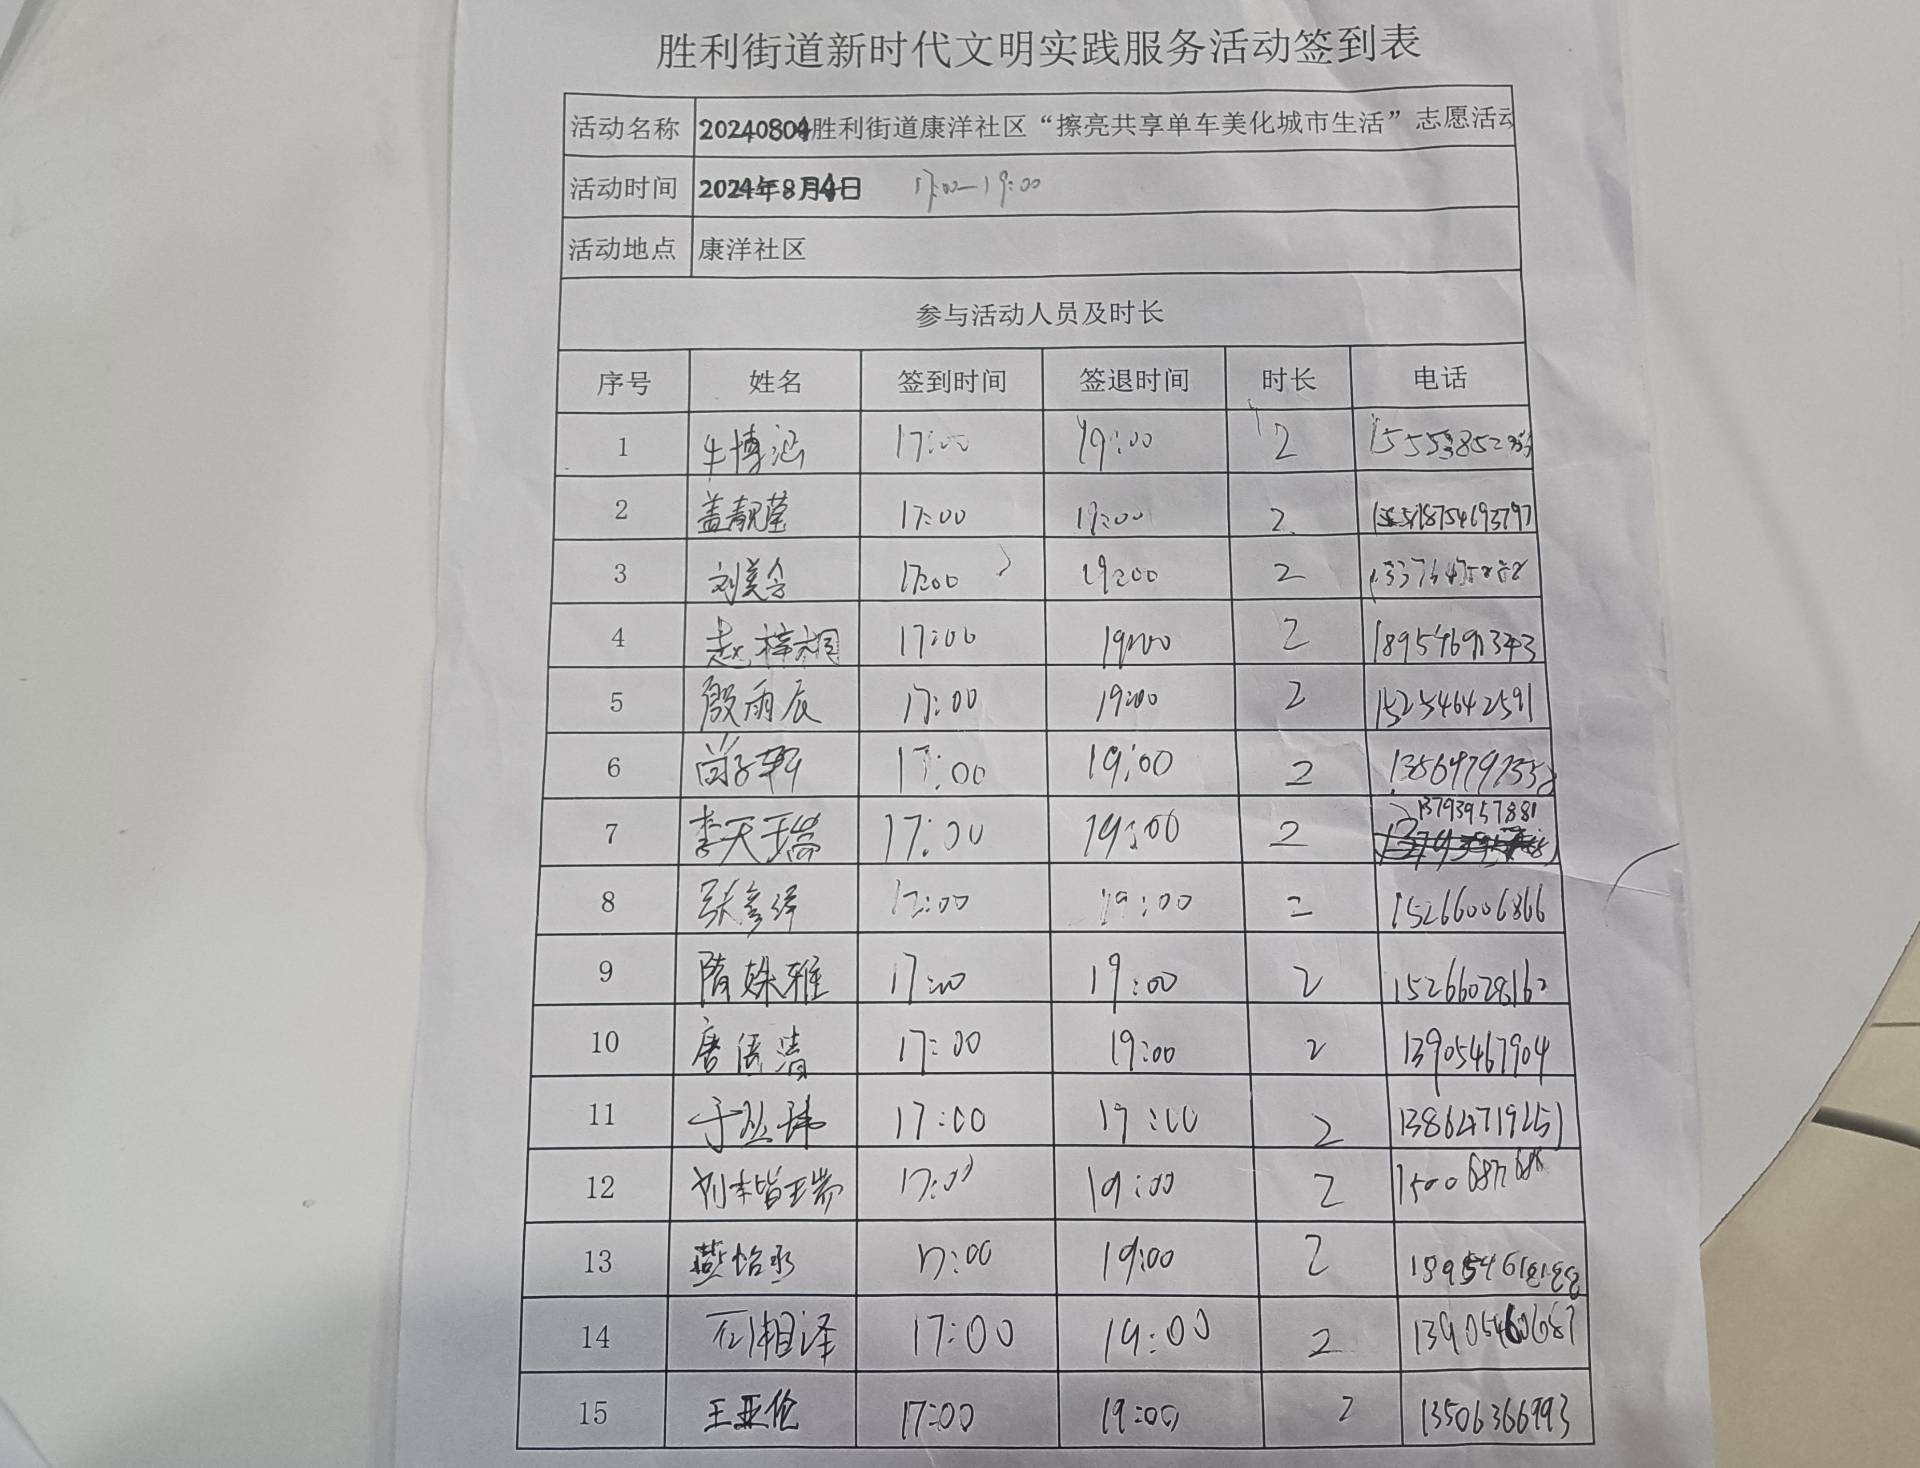 胜利街道新时代文明实践服务活动签到表
活动名称 20240804胜利街道康洋社区“擦亮共享单车美化城市生活”志愿活动
活动时间 2024年8月4日 17:00—19:00
活动地点 康洋社区
参与活动人员及时长
序号 姓名 签到时间 签退时间 时长 电话
1 牛博涵 17:00 19:00 2
2 盖靓莹 17:00 19:00 2
3 刘美含 17:00 19:00 2
4 赵梓桐 17:00 19:00 2
5 殷雨辰 17:00 19:00 2 15254642591
6 尚子轩 17:00 19:00 2
7 李天瑞 17:00 19:00 2 13793957881
8 张鑫泽 17:00 19:00 2 15266006866
9 隋姝雅 17:00 19:00 2 15266028162
10 唐 清 17:00 19:00 2 13905467904
11 于 玮 17:00 19:00 2 13864719251
12 17:00 19:00 2
13 17:00 19:00 2
14 石相泽 17:00 19:00 2 13905460687
15 王亚伦 17:00 19:00 2 13506366993